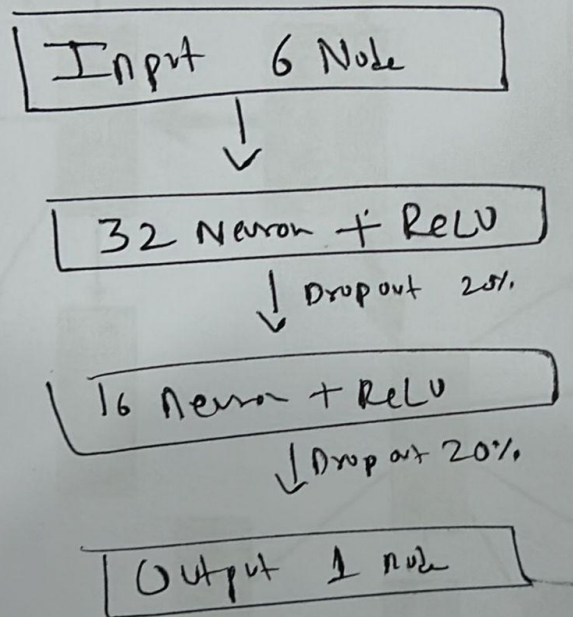 Input 6 Node
32 Neuron + ReLU
Dropout 20%
16 Neuron + ReLU
Dropout 20%
Output 1 node